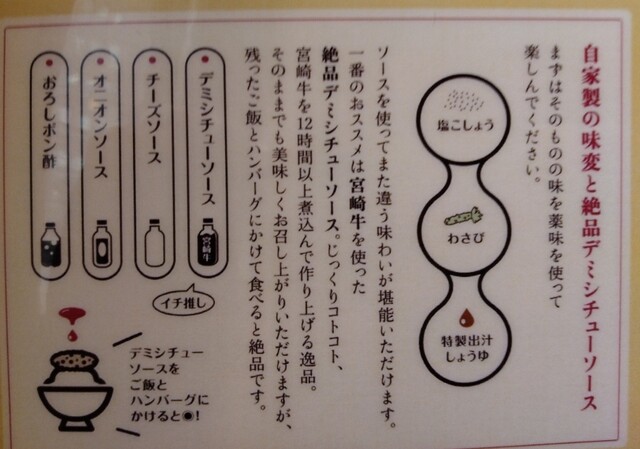 自家製の味変と絶品デミシチューソース
まずはそのものの味を薬味を使って
楽しんでください。
塩こしょう
わさび
特製出汁
しょうゆ
ソースを使ってまた違う味わいが堪能いただけます。
一番のおススメは宮崎牛を使った
絶品デミシチューソース。じっくりコトコト、
宮崎牛を12時間以上煮込んで作り上げる逸品。
そのままでも美味しくお召し上がりいただけますが、
残ったご飯とハンバーグにかけて食べると絶品です。
デミシチューソース
宮崎牛
イチ推し
チーズソース
オニオンソース
おろしポン酢
デミシチュー
ソースを
ご飯と
ハンバーグに
かけると◉!